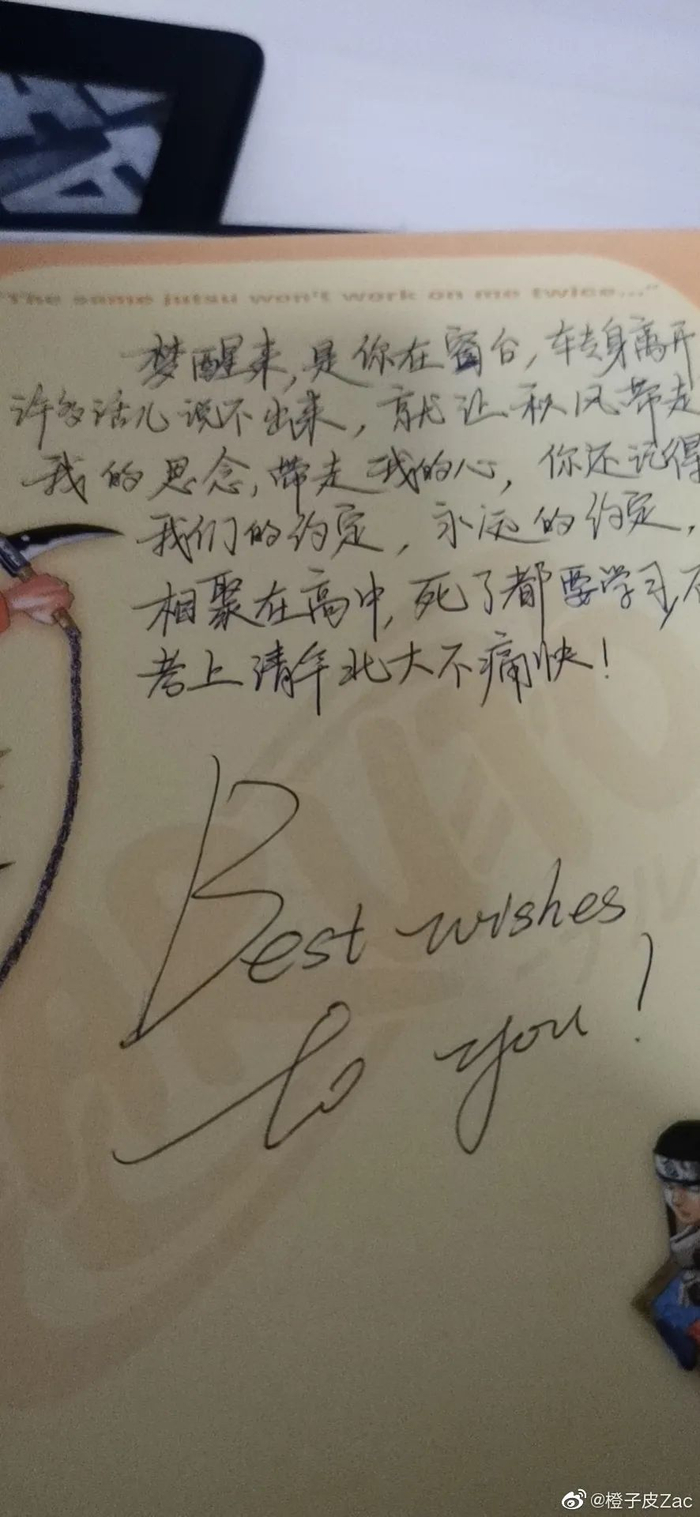 "The same jutsu won't work on me twice..."
梦醒来,是你在窗台,转身离开
许多话儿说不出来,就让秋风带走
我的思念,带走我的心,你还记得
我们的约定,永远的约定,
相聚在高中,死了都要学习,不
考上清华北大不痛快!
Best wishes
to you!
@橙子皮Zac